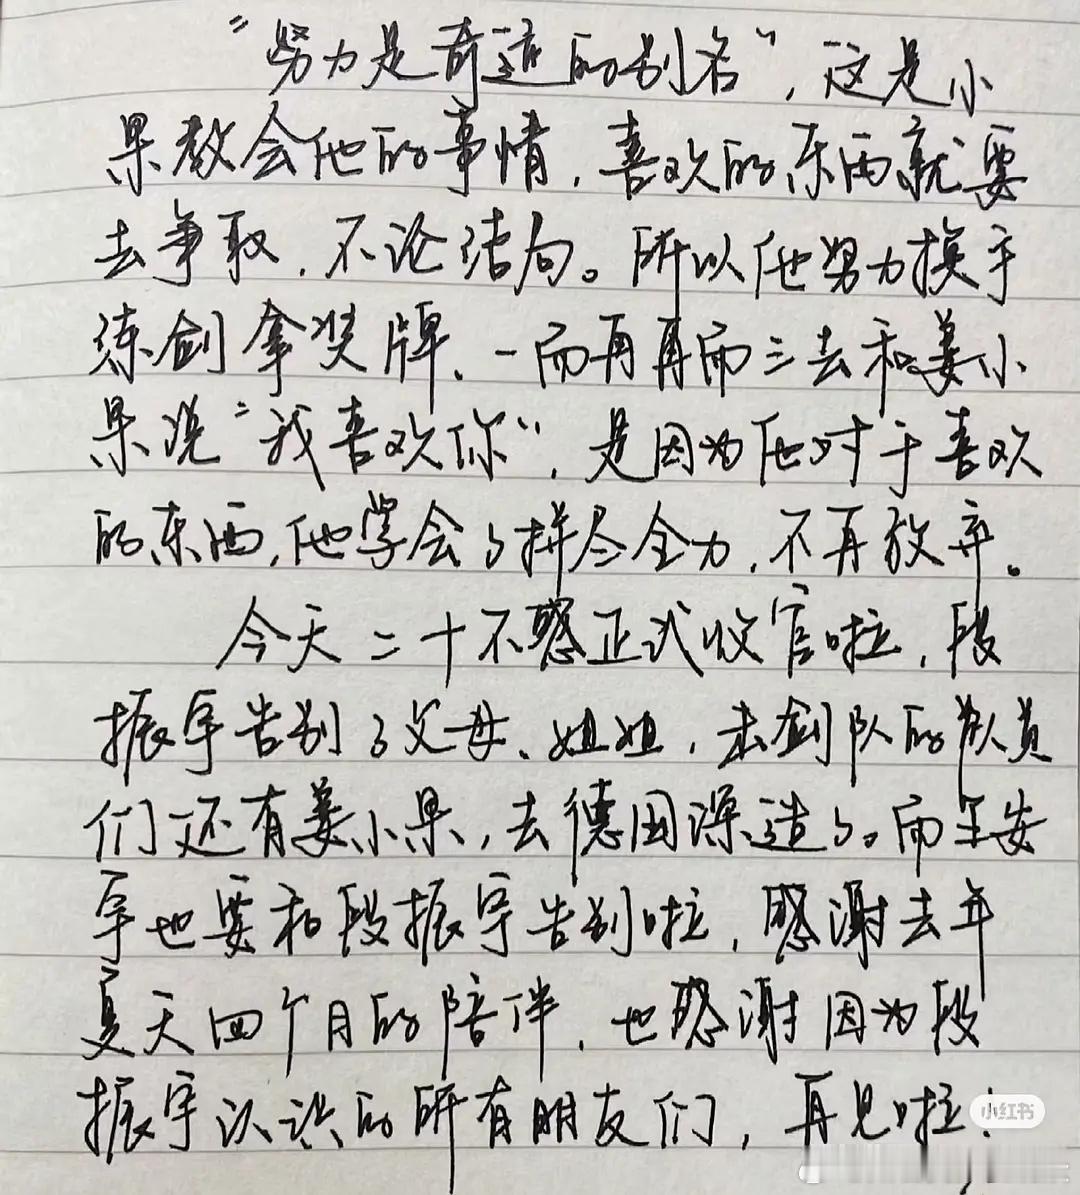 “努力是奇迹的别名”，这是小
果教会他的事情，喜欢的东西就要
去争取，不论结局。所以他努力换手
练剑拿奖牌、一而再再而三去和姜小
果说“我喜欢你”，是因为他对于喜欢
的东西，他学会了拼尽全力，不再放弃。
今天二十不惑正式收官啦，段
振宇告别了父母、姐姐，击剑队的队员
们还有姜小果，去德国深造了。而王安
宇也要和段振宇告别啦，感谢去年
夏天四个月的陪伴，也感谢因为段
振宇认识的所有朋友们，再见啦！
小红书